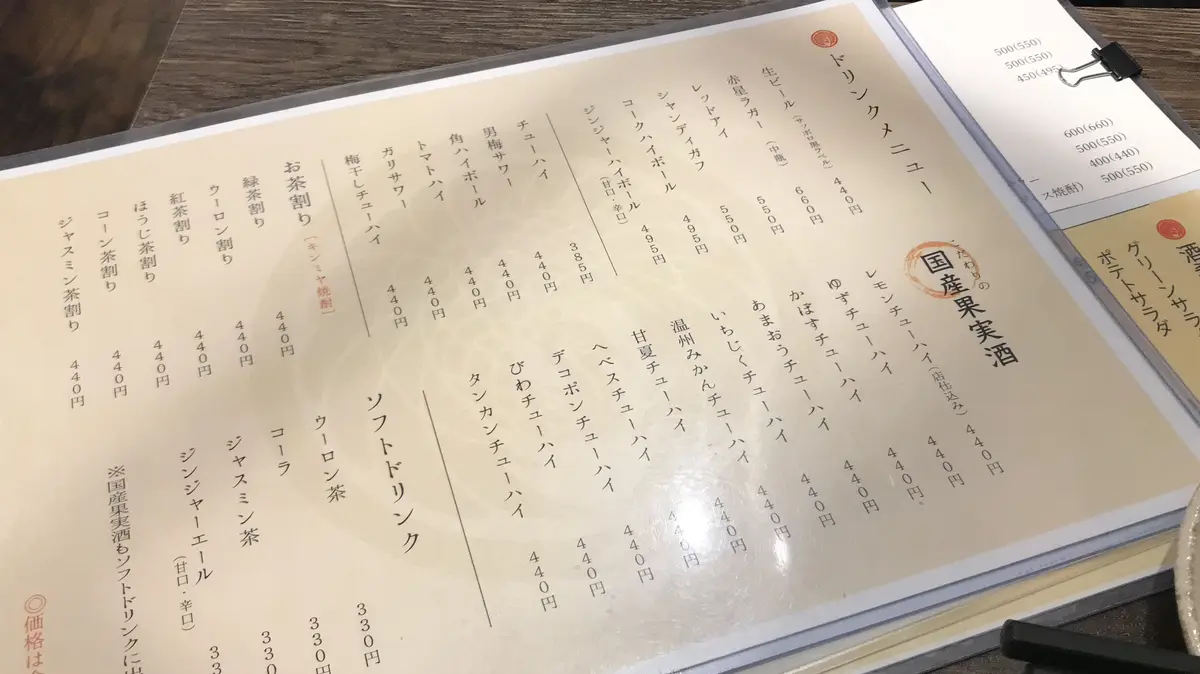 ドリンクメニュー
生ビール(サッポロ黒ラベル) 440円
赤星ラガー(中瓶) 660円
レッドアイ 550円
シャンディガフ 550円
コークハイボール 495円
ジンジャーハイボール(甘口・辛口) 495円
チューハイ 385円
男梅サワー 440円
角ハイボール 440円
トマトハイ 440円
ガリサワー 440円
梅干しチューハイ 440円
お茶割り(キンミヤ焼酎)
緑茶割り 440円
ウーロン割り 440円
紅茶割り 440円
ほうじ茶割り 440円
コーン茶割り 440円
ジャスミン茶割り 440円
こだわりの
国産果実酒
レモンチューハイ(店仕込み) 440円
ゆずチューハイ 440円
かぼすチューハイ 440円
あまおうチューハイ 440円
いちじくチューハイ 440円
温州みかんチューハイ 440円
甘夏チューハイ 440円
へべスチューハイ 440円
デコポンチューハイ 440円
びわチューハイ 440円
タンカンチューハイ 440円
ソフトドリンク
ウーロン茶 330円
コーラ 330円
ジャスミン茶 330
ジンジャーエール(甘口・辛口) 33
※国産果実酒もソフトドリンクに出
◎価格は
500(550)
500(550)
450(495)
600(660)
500(550)
400(440)
ス焼酎) 500(550)
酒
グリーンサラ
ポテトサラダ